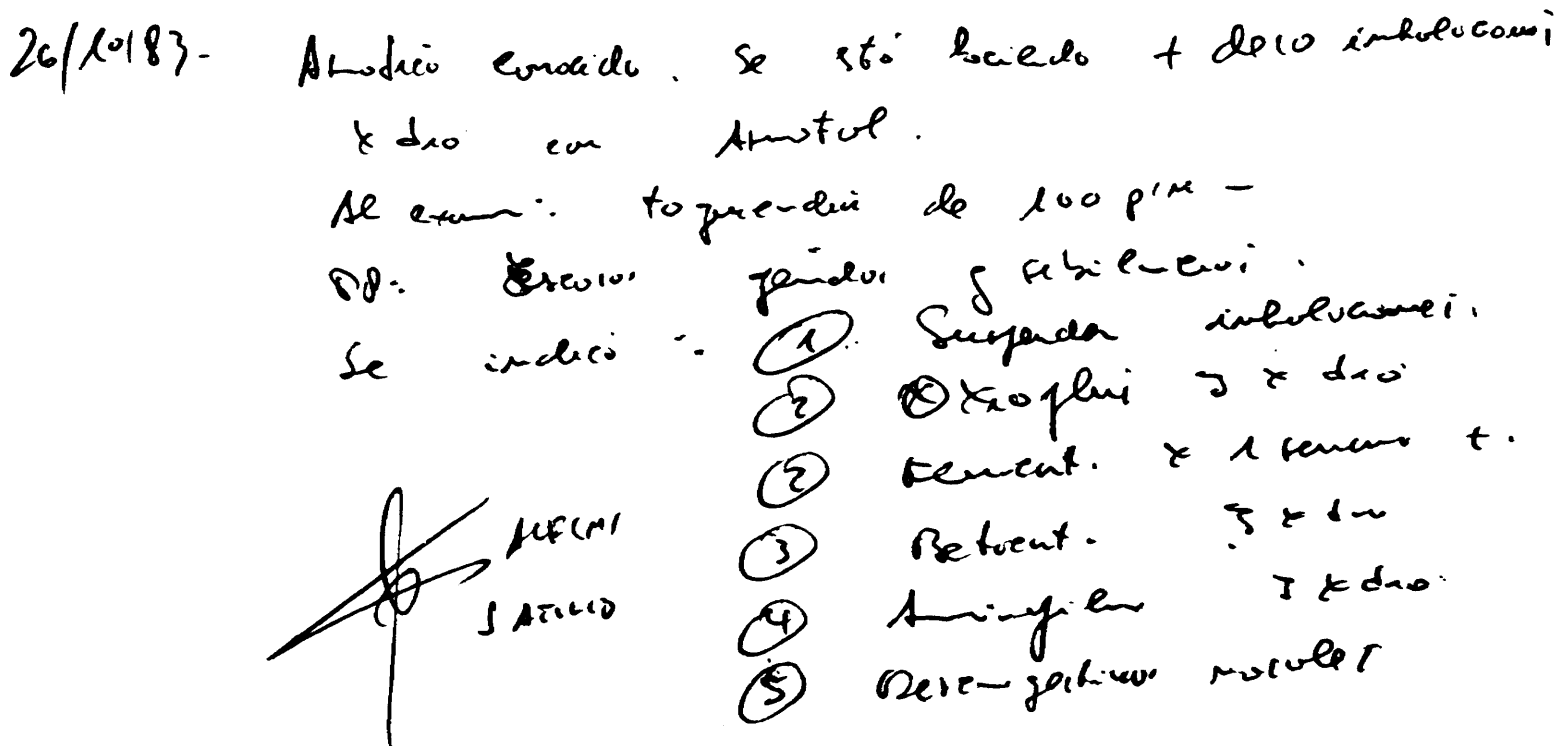 26/10/83- Asmático conocido. Se está haciendo + de 10 inhalaciones
x día con Asmatol.
Al examen: taquicardia de 100 p/m -
PP: Escasos gemidos y sibilancias.
Se indicó: 1 Suspender inhalaciones.
2 3 x día
2 x 1 semana +.
3 Betvent. 3 x día
4 Aminofilina 3 x día
5 Descongestivos nasales
ATILIO